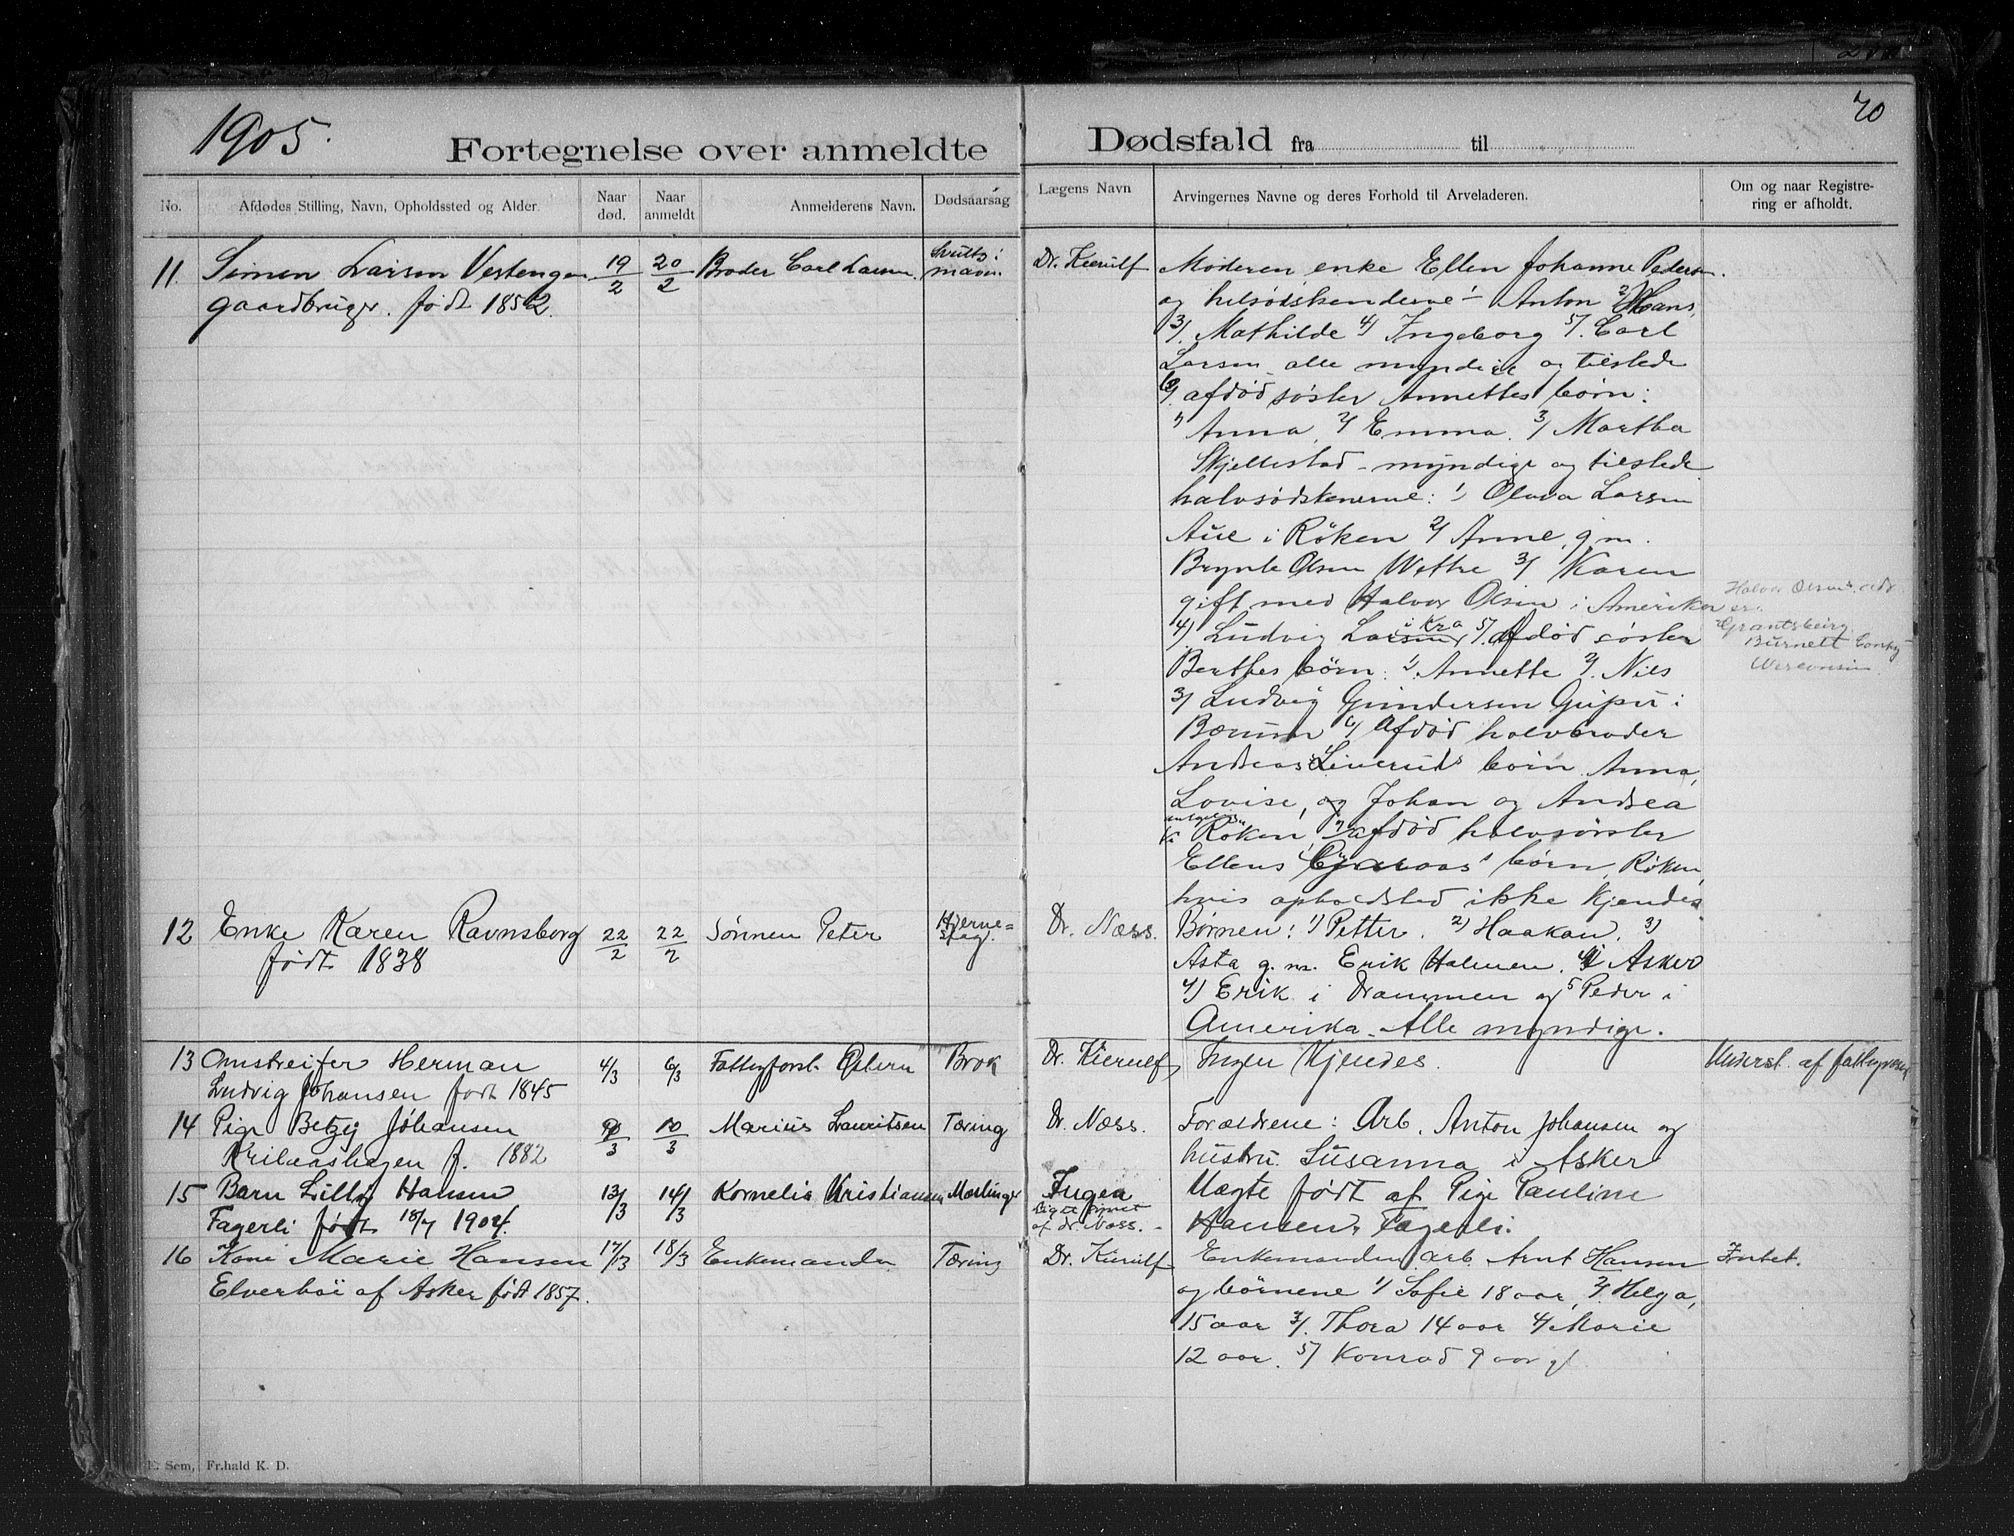 1905.
70
Fortegnelse over anmeldte Dødsfald fra til
No.
Afdødes Stilling, Navn, Opholdssted og Alder.
Naar død.
Naar anmeldt
Anmelderens Navn.
Dødsaarsag
Lægens Navn
Arvingernes Navne og deres Forhold til Arveladeren.
Om og naar Registrering er afholdt.
11. Simen Larsen Vestengen 19/2 20/2 Broder Carl Larsen
gaardbruger. født 1852.
Dr. Kierulf
Moderen enke Ellen Johanne Pedersen.
og helsødskenderne 1 Anton 2/ Hans,
3/. Mathilde 4) Ingeborg 5/. Carl
Larsen alle myndige og tilstede
6/. afdød søster Annettes børn:
1) Anna, 2/ Emma. 3/ Martha
Skjellestad - myndige og tilstede
halvsødskenerne: 1) Olava Larsen
Aue i Røken 2/ Anne, g. m.
Brynte Olsen Wethe 3/ Karen
gift med Halvor Olsen i Amerika
4) Ludvig Larsen i Kra 5/. Afdød søster
Berthes børn: 1. Annette 2/. Nils
3) Ludvig Gundersen Gupu i
Bærum 6) Afdød halvbroder
Andreas Liveruds børn Anna,
Lovise, og Johan og Andrea
Røken, 7 afdød halvsøster
Ellens børn, Røken,
hvis opholdsted ikke kjendes
Halvor Olsens adr
er.
Grantsberg
Burnett County
Wisconsin
12 Enke Karen Ravnsborg 22/2 22/2 Sønnen Peter Hjerneslag.
født 1838
Dr. Næss.
Børnen: 1) Petter. 2) Haakan. 3)
Asta g. m. Erik Halmen. i Asker
4) Erik i Drammen og 5 Peder i
Amerika. Alle myndige.
13 Omstreifer Herman 4/3 6/3 Fattigforst. Østern Brok
Ludvig Johansen født 1845
Dr. Kierulf
Ingen kjendes.
Underst. af fattigvæsen
14 Pige Betzy Johansen 9/3 10/3 Marius Lauritsen Tæring
f. 1882
Dr. Næss.
Forældrene: Arb. Anton Johansen og
hustru Susanna i Asker
15 Barn Lilly Hansen 13/3 14/3 Kornelia Kristiansen Mæslinger
Fagerli født 18/7 1904.
Ingen
af dr. Næss.
Uægte født af Pige Pauline
Hansen, Fagerli.
16 Kone Marie Hansen 17/3 18/3 Enkemanden Tæring
Elverhöi af Asker født 1857.
Dr. Kierulf
Enkemanden arb. Arnt Hansen
og børnene 1/ Sofie 18 aar, 2/. Helga,
15 aar 3/. Thora 14 aar 4/ Marie
12 aar. 5/ Konrad 9 aar gl
Intet.
E. Sem, Fr.hald K. D.